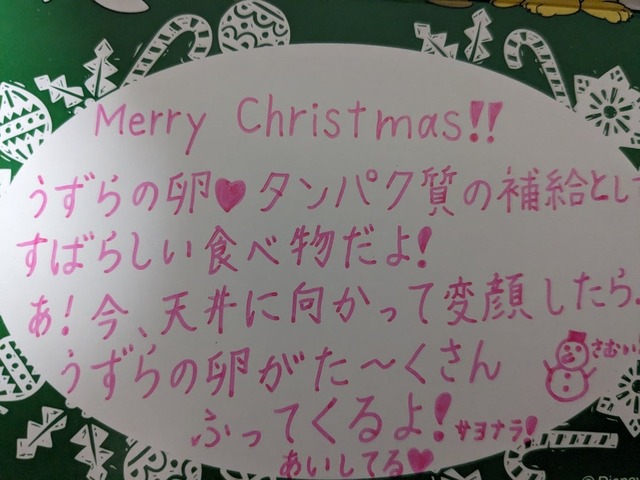 Merry Christmas!!
うずらの卵♥タンパク質の補給とし
すばらしい食べ物だよ!
あ!今、天井に向かって変顔したら
うずらの卵がた〜くさん
さむい
ふってくるよ!サヨナラ!
あいしてる♥